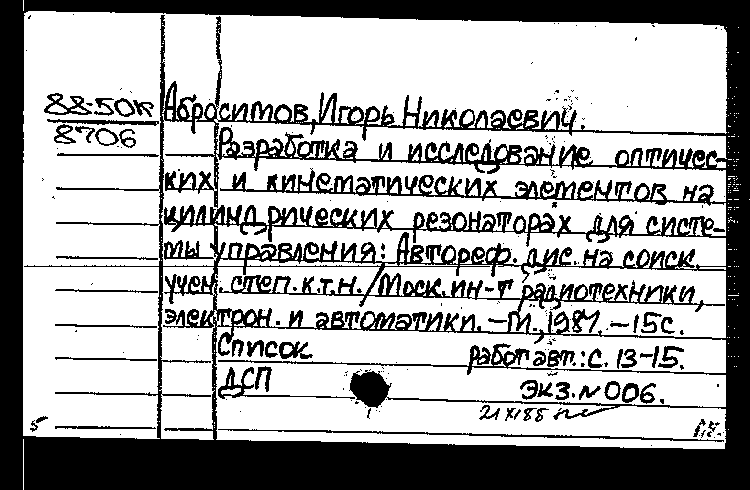 88-50К Абросимов, Игорь Николаевич.
8706
Разработка и исследование оптичес-
ких и кинематических элементов на
цилиндрических резонаторах для систе-
мы управления: Автореф. дис. на соиск.
учен. степ. к.т.н./Моск. ин-т радиотехники,
электрон. и автоматики. – М., 1987. – 15с.
Список работ авт.: с. 13-15.
ДСП Экз. N 006.
5